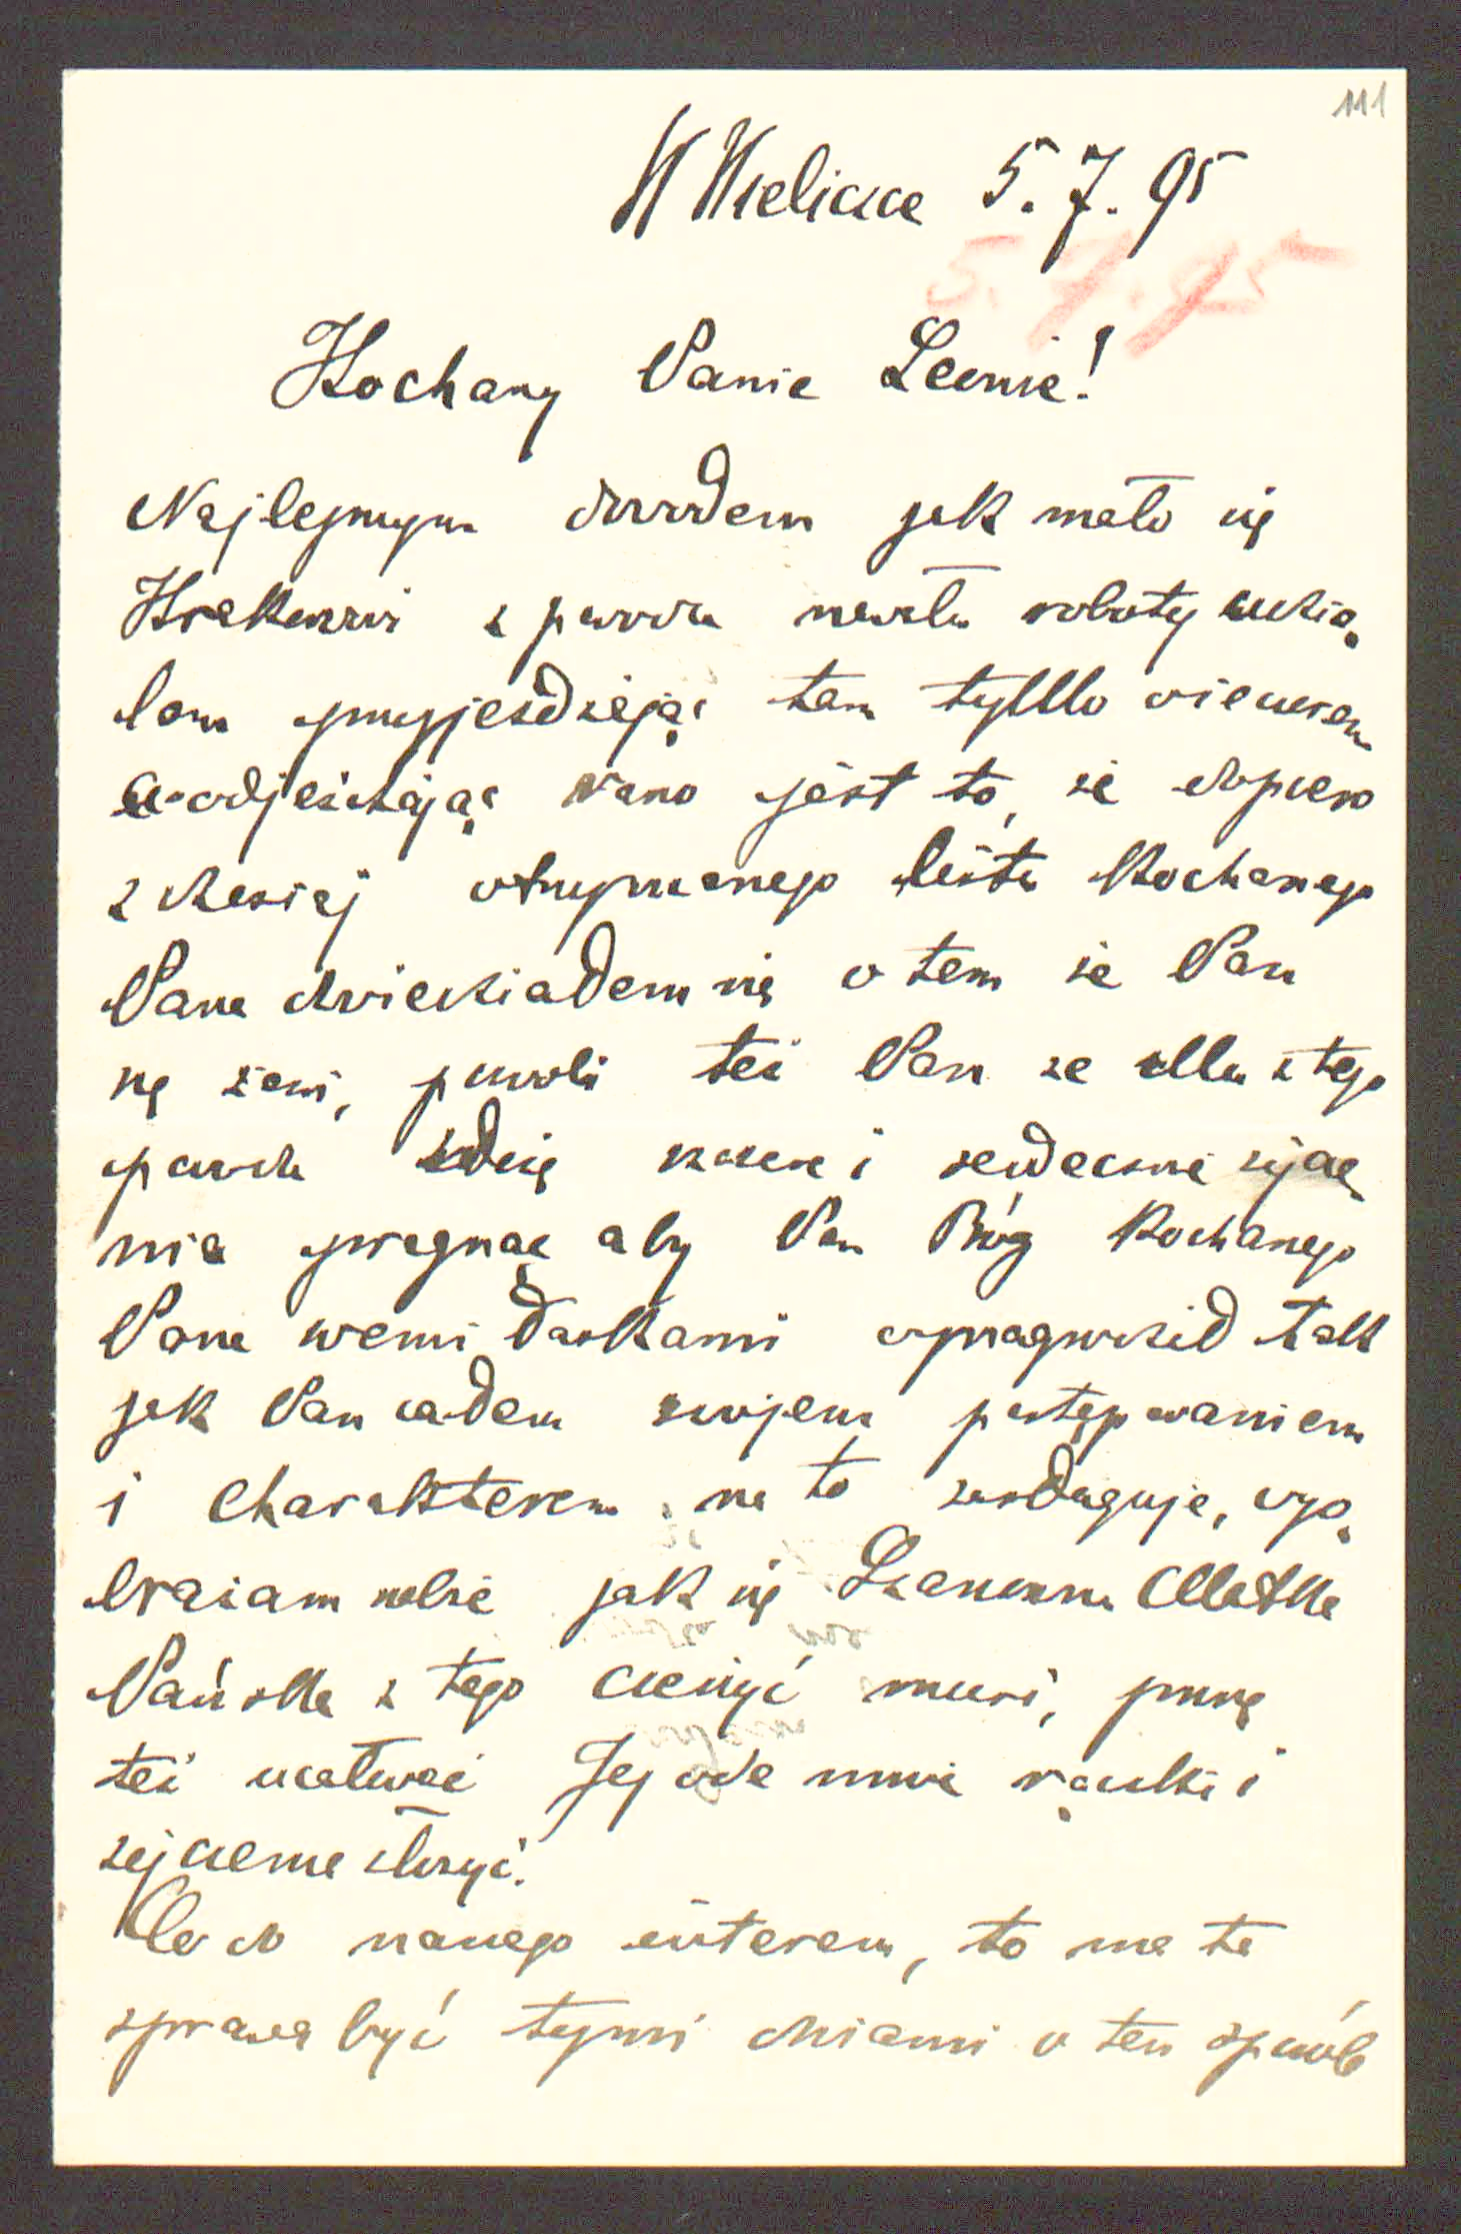 111
W Wieliczce 5. 7. 95
5. 7. 95
Kochany Panie Leonie!
Najlepszym dowodem jak mało się
Krakowowi z powodu nawału roboty udzie
lam przyjeżdżając tam tylko wieczorem
a odjeżdżając rano jest to, że dopiero
z dzisiaj otrzymanego listu Kochanego
Pana dowiedziałem się o tem że Pan
się żeni, pozwoli też Pan że Mu z tego
powodu złożę szczere i serdeczne życze
nia pragnąc aby Pan Bóg Kochanego
Pana swemi łaskami wynagrodził tak
jak Pan całem swojem postępowaniem
i charakterem na to zasługuje, wyo
brażam sobie jak się Szanowna Matka
Pańska z tego cieszyć musi, proszę
też ucałować Jej ode mnie rączki i
życzenia złożyć.
Co do naszego interesu, to ma ta
sprawa być tymi dniami w ten sposób